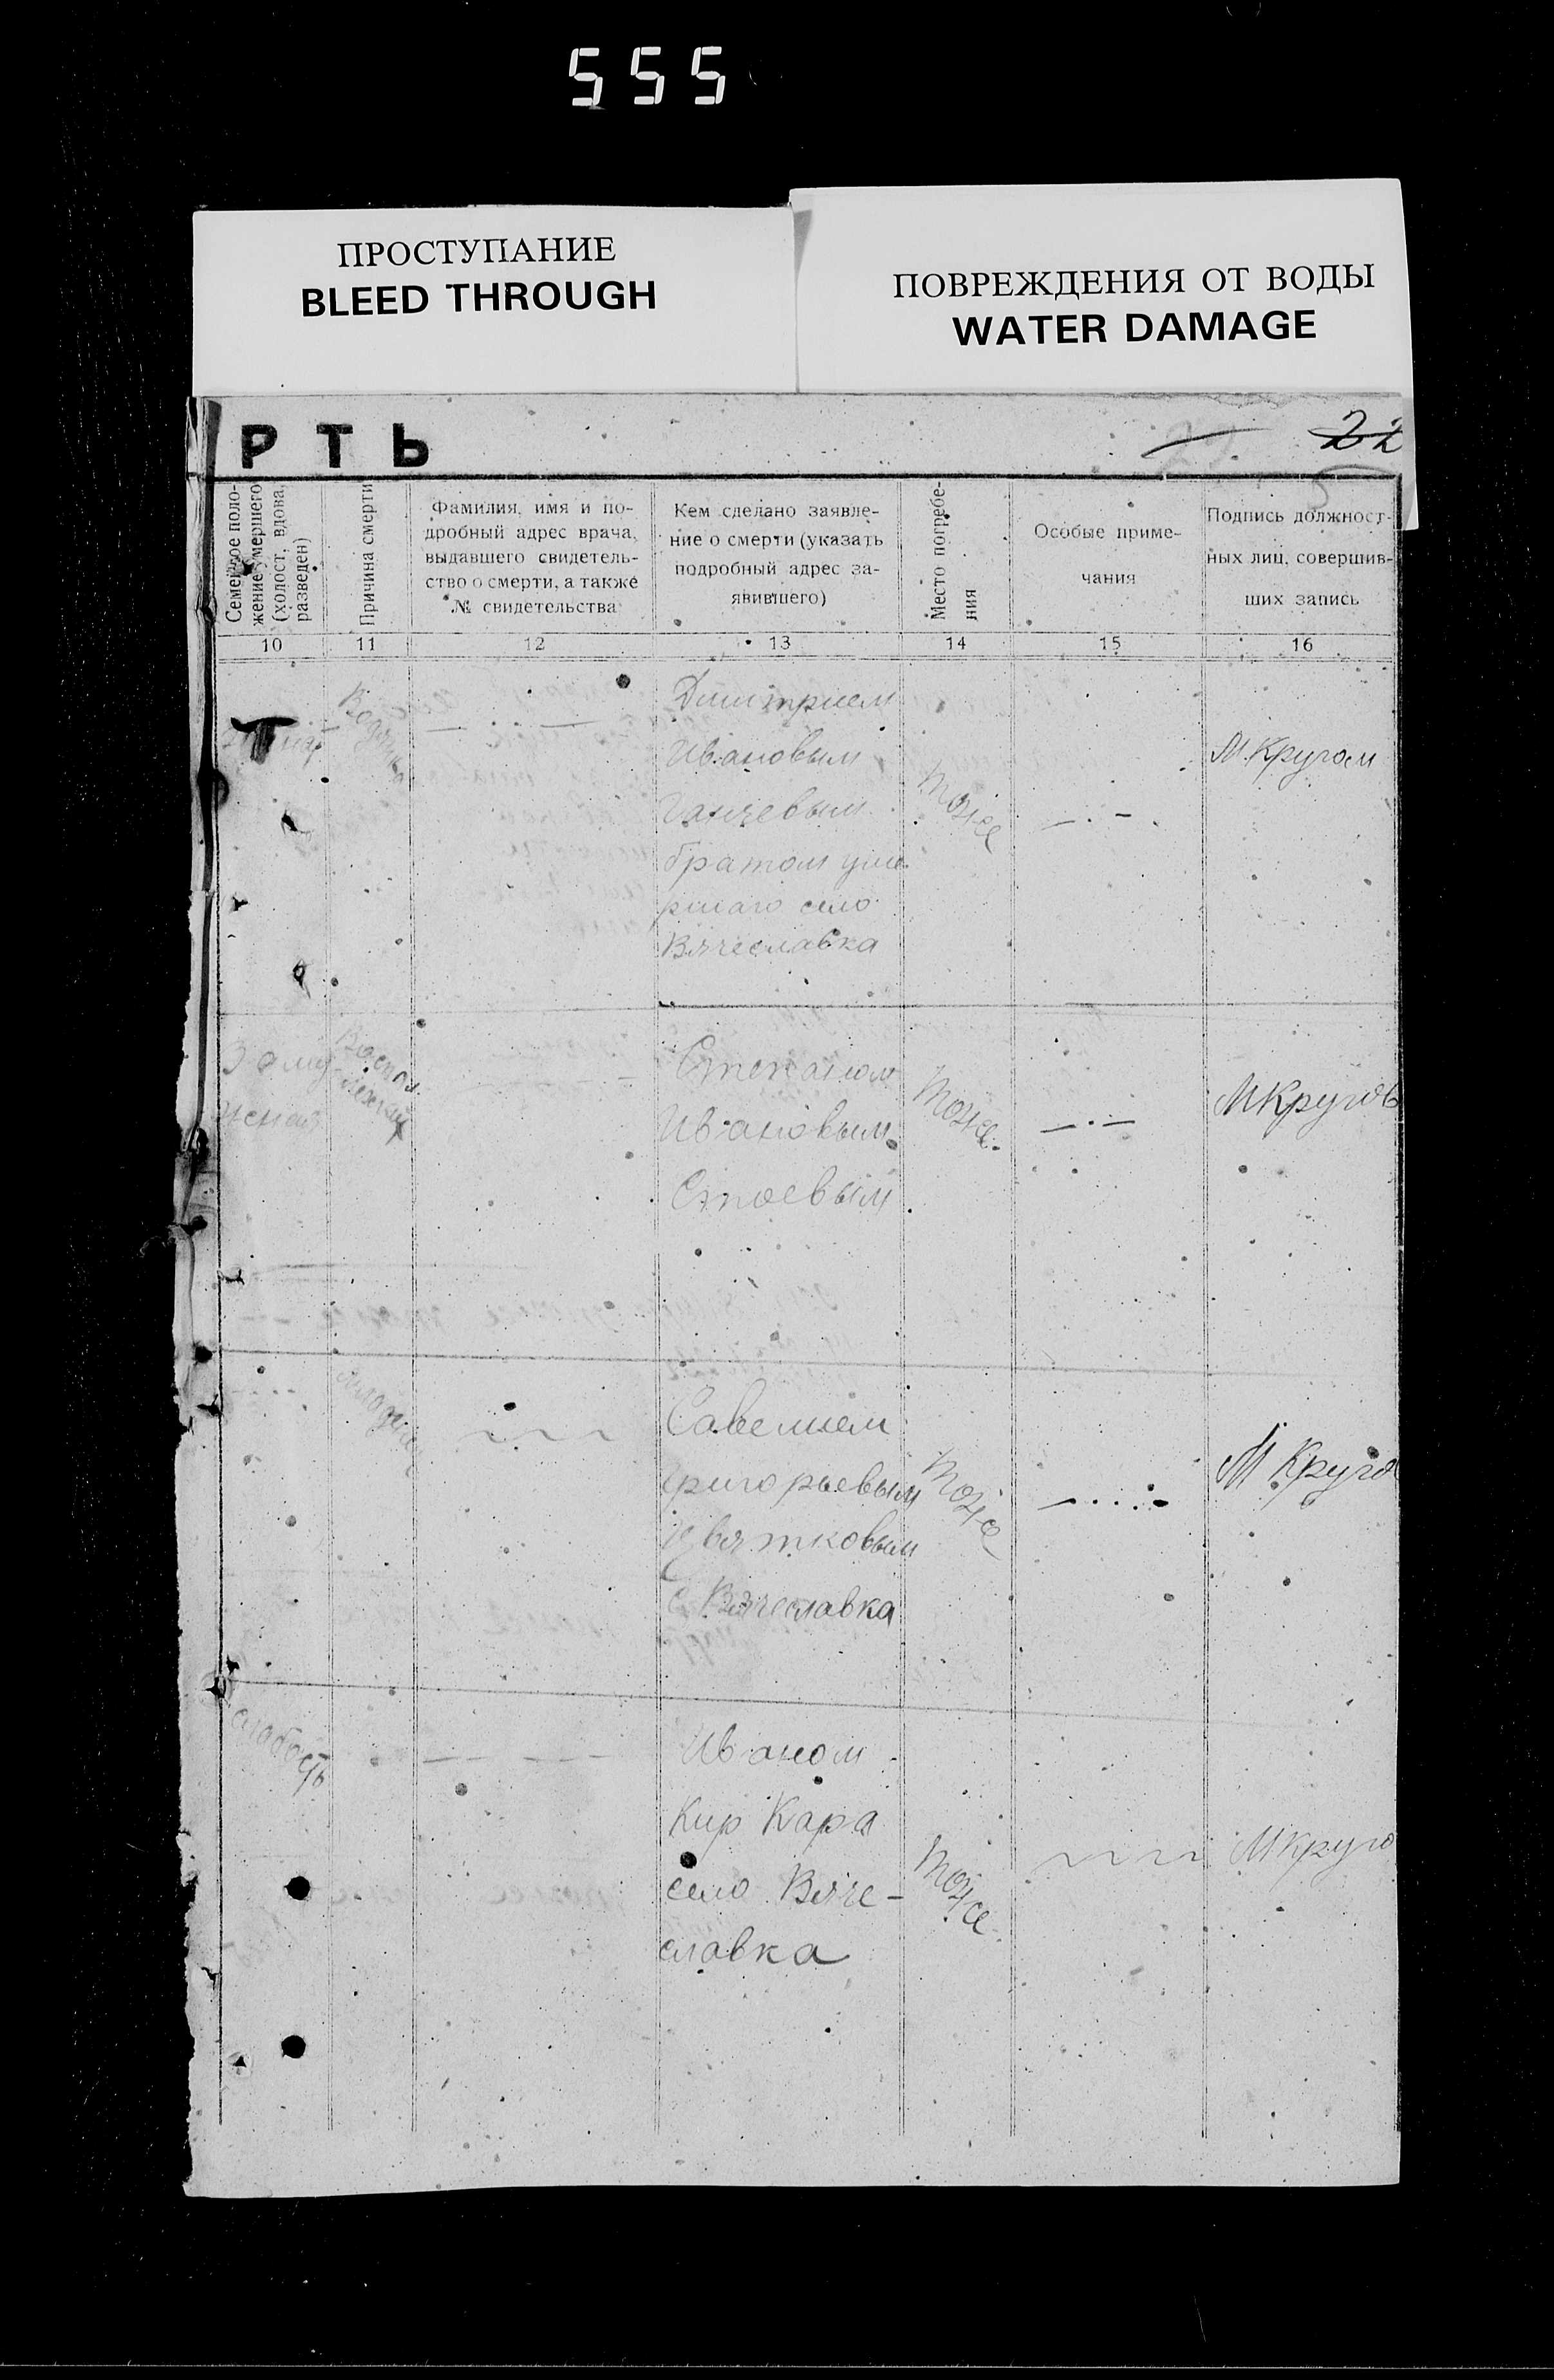 555
ПРОСТУПАНИЕ
BLEED THROUGH
ПОВРЕЖДЕНИЯ ОТ ВОДЫ
WATER DAMAGE
РТЬ
22
Семейное поло-
жение умершего
(холост, вдова,
разведен)
Причина смерти
Фамилия, имя и по-
дробный адрес врача,
выдавшего свидетель-
ство о смерти, а также
№ свидетельства
Кем сделано заявле-
ние о смерти (указать
подробный адрес за-
явившего)
Место погребе-
ния
Особые приме-
чания
Подпись должност-
ных лиц, совершив-
ших запись
10 11 12 13 14 15 16
Димитрием
Ивановым
Ганчевым
братом уме
ршаго село
Вячеславка
тоже
М. Кругом
Заму-
жная
Воспал.
Степаном
Ивановым
Стоевым
тоже
МКругов
Савелием
Григорьевым
Цвятковым
с Вячеславка
тоже
М Круго
слабость
Иваном
Кир Кара
село Вяче-
славка
тоже
МКруго